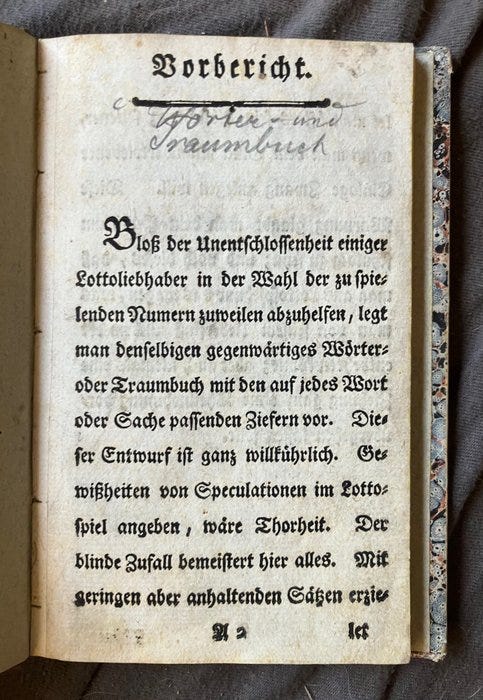 Vorbericht.
Wörter- und
Traumbuch
Bloß der Unentschlossenheit einiger
Lottoliebhaber in der Wahl der zu spie-
lenden Numern zuweilen abzuhelfen, legt
man denselbigen gegenwärtiges Wörter-
oder Traumbuch mit den auf jedes Wort
oder Sache passenden Ziefern vor. Die-
ser Entwurf ist ganz willkührlich. Ge-
wißheiten von Speculationen im Lotto-
spiel angeben, wäre Thorheit. Der
blinde Zufall bemeistert hier alles. Mit
geringen aber anhaltenden Sätzen erzie-
A 2 let